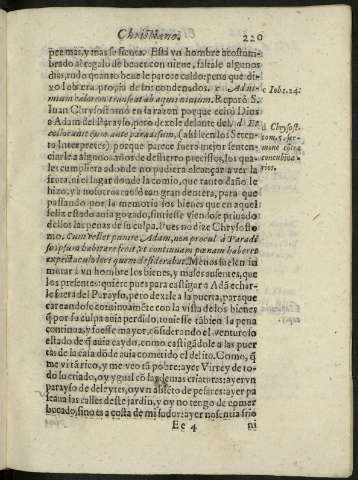 Christiano. 220
pee mas, y mas se sienta. Està vn hombre acostum-
brado al regalo de beuer con nieue, faltale algunos
dias, todo quanto beue le parece caldo: pena que di-
xo Iob era propia de los condenados. c Ad ni-
mium calorem transeat ab aquis niuium. Reparò S.
Iuan Chrysostomo en la razon porque echò Dios
a Adam del Parayso, pero dexole delante del. d Et
collocauit eum ante paradisum, (assi leen los Seten-
ta Interpretes) porque parece fuera mejor senten-
ciarle a algunos años de destierro precissos, los qua-
les cumpliera adonde no pudiera alcançar a ver la
fruta, ni el lugar donde la comio, que tanto daño le
hizo, y a nosotros echò tan gran dentera, para que
passando por la memoria los bienes que en aquel
feliz estado auia gozado, sintiesse viendose priuado
dellos las penas de su culpa. Pues no dize Chrysosto
mo. Cum vellet punire Adam, non procul à Paradi
so ipsum habitare fecit, vt continuam pœnam haberet
expectaculo loci quem desiderabat. Menos suelen in
mutar a vn hombre los bienes, y males ausentes, que
los presentes: quiere pues para castigar a Adã echar-
le fuera del Parayso, pero dexale a la puerta, para que
careandose continuamẽte con la vista de los bienes
q̃ por su culpa auia perdido, tuuiesse tãbien la pena
continua, y fuesse mayor, cõsiderando el venturoso
estado de q̃ auia caydo, como castigãdole a las puer
tas de la casa dõde auia cometido el delito. Como, q̃
me vi tã rico, y me veo tã pobre: ayer Virrey de to-
do lo criado, oy ygual cõ las demas criaturas: ayer vn
parayso de deleytes, oy vn abismo de pesares: ayer pa
seaua las calles deste jardin, y oy no tengo de comer
bocado, sino es a costa de mi sudor: ayer no sentia frio
Ee 4 ni
c Iob 1. 24.
d Chrysost.
tom. 5. ser-
mone cõtra
concubina-
rios.